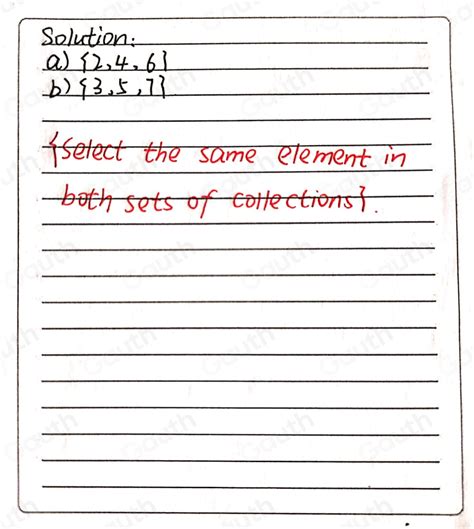 Solution:
a) {2,4,6}
b) {3,5,7}
{Select the same element in
both sets of collections}.